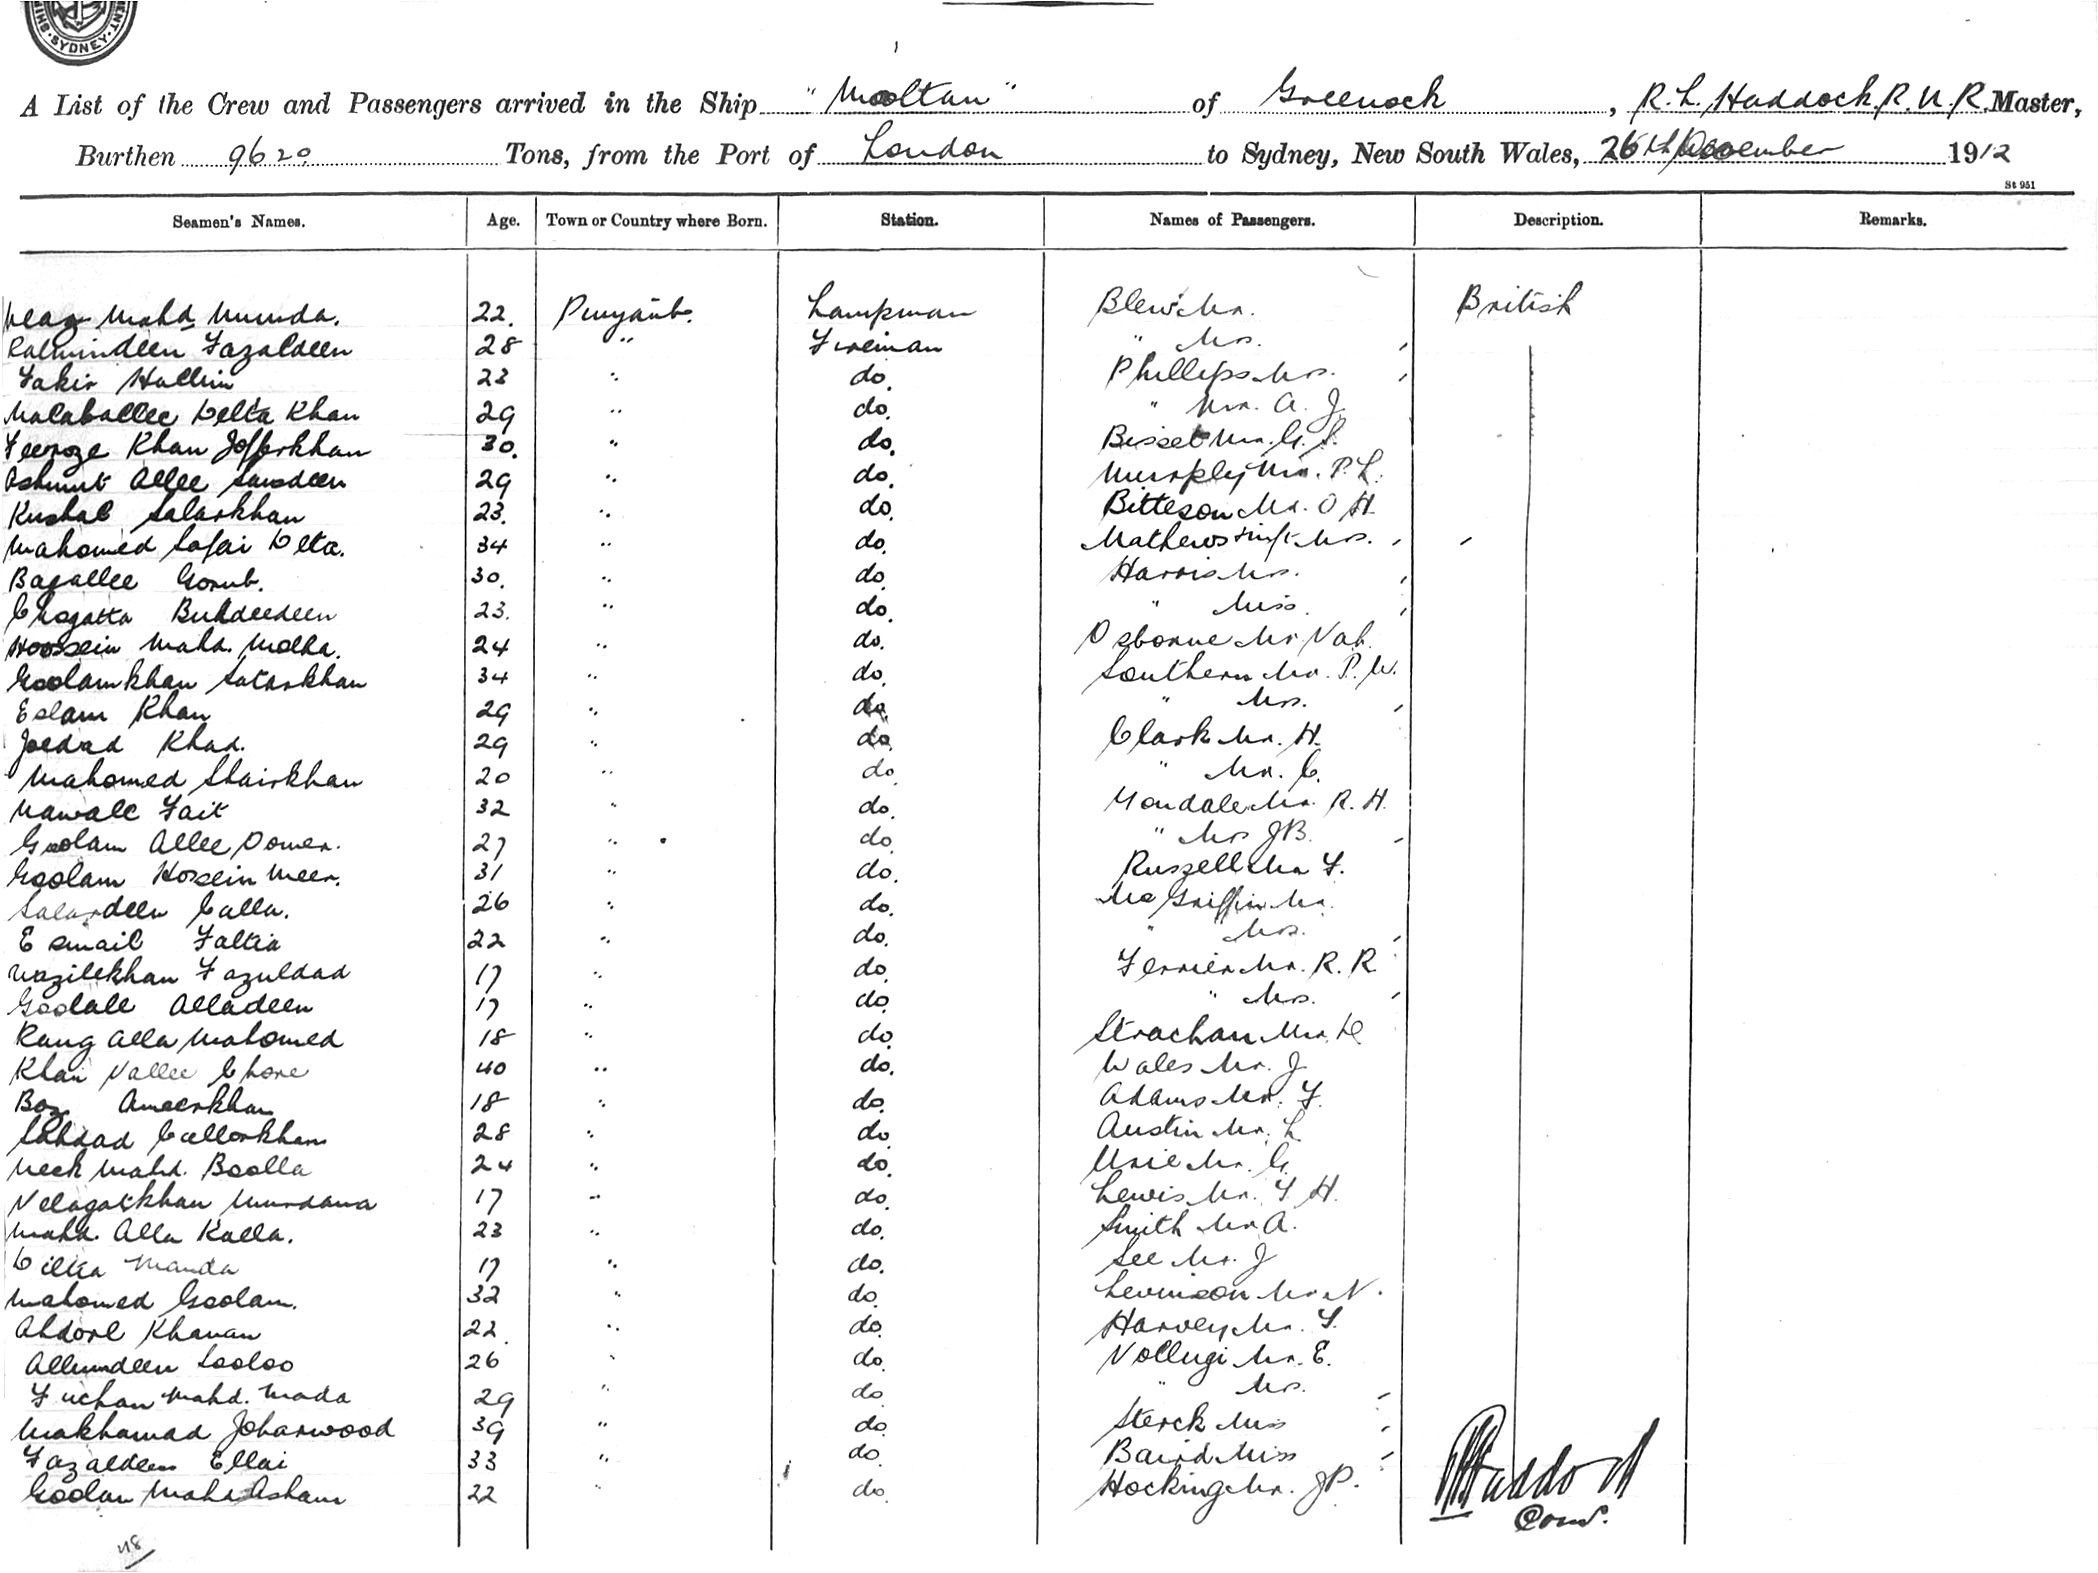 SYDNEY
A List of the Crew and Passengers arrived in the Ship "Mooltan" of Greenock, R. L. Haddock, R.N.R. Master,
Burthen 9620 Tons, from the Port of London to Sydney, New South Wales, 26th December 1912
St 951
Seamen's Names. Age. Town or Country where Born. Station. Names of Passengers. Description. Remarks.
Mahd Munda. 22. Punjaub. Lampman Blew Mr. British
Fazaldeen 28 " Fireman " Mrs.
Fakir Hallim 23 " do. Phillips Mrs.
Khan 29 " do. " Mr. A. J.
Feeroze Khan Jofferkhan 30. " do. Bisset Mr. G. S.
Ashmut Allee 29 " do. Murphy Mr. P. L.
Kushal Salarkhan 23. " do. Bitteson Mr. O H.
Mahomed Safai Ditta. 34 " do. Mathews Mrs.
Bagallee Gorub. 30. " do. Harris Mrs.
Chogatta Buhdeedeen 23. " do. " Miss.
Hoossein Mahd. Molha. 24 " do. Osborne Mr
Goolamkhan Satarkhan 34 " do. Southern Mr. P. W.
Eslam Khan 29 " do. " Mrs.
Joedad Khad. 29 " do. Clark Mr. H.
Mahomed Shairkhan 20 " do. " Mr. C.
Nawale Fait 32 " do. Mr. R. H.
Goolam Allee Domer. 27 " do. " Mrs J B.
Goolam Hossein Meer. 31 " do. Russell Mr F.
Salardeen Calla. 26 " do. McGriffin Mr.
Esmail Fattia 22 " do. " Mrs.
Vazilekhan Fazuldad 17 " do. Ferrier Mr. R. R
Goolale Alladeen 17 " do. " Mrs.
Rang Alla Mahomed 18 " do. Strachan Mr. D
Khan Vallee Chore 40 " do. Wales Mr. J
Boz Ameerkhan 18 " do. Adams Mr. F.
Sahdad Callorkhan 28 " do. Austin Mr. L
Neek Mahd. Boolla 24 " do. Urie Mr. G.
Murdana 17 " do. Lewis Mr. F. H.
Mahd. Alla Kalla. 23 " do. Smith Mr A.
Manda 17 " do. See Mr. J
Mahomed Goolam. 32 " do. Levinson Mr N.
Abdorl Khanan 22. " do. Harvey Mr. F.
Allumdeen Looloo 26 " do. Vollugi Mr. E.
Fuchan Mahd. Mada 29 " do " Mrs.
Makhamad Joharwood 39 " do. Sterck Miss
Fazaldeen Ellai 33 " do. Baird Miss
Goolam Mahd Asham 22 " do. Hocking Mr. J P.
R L Haddock
Com.